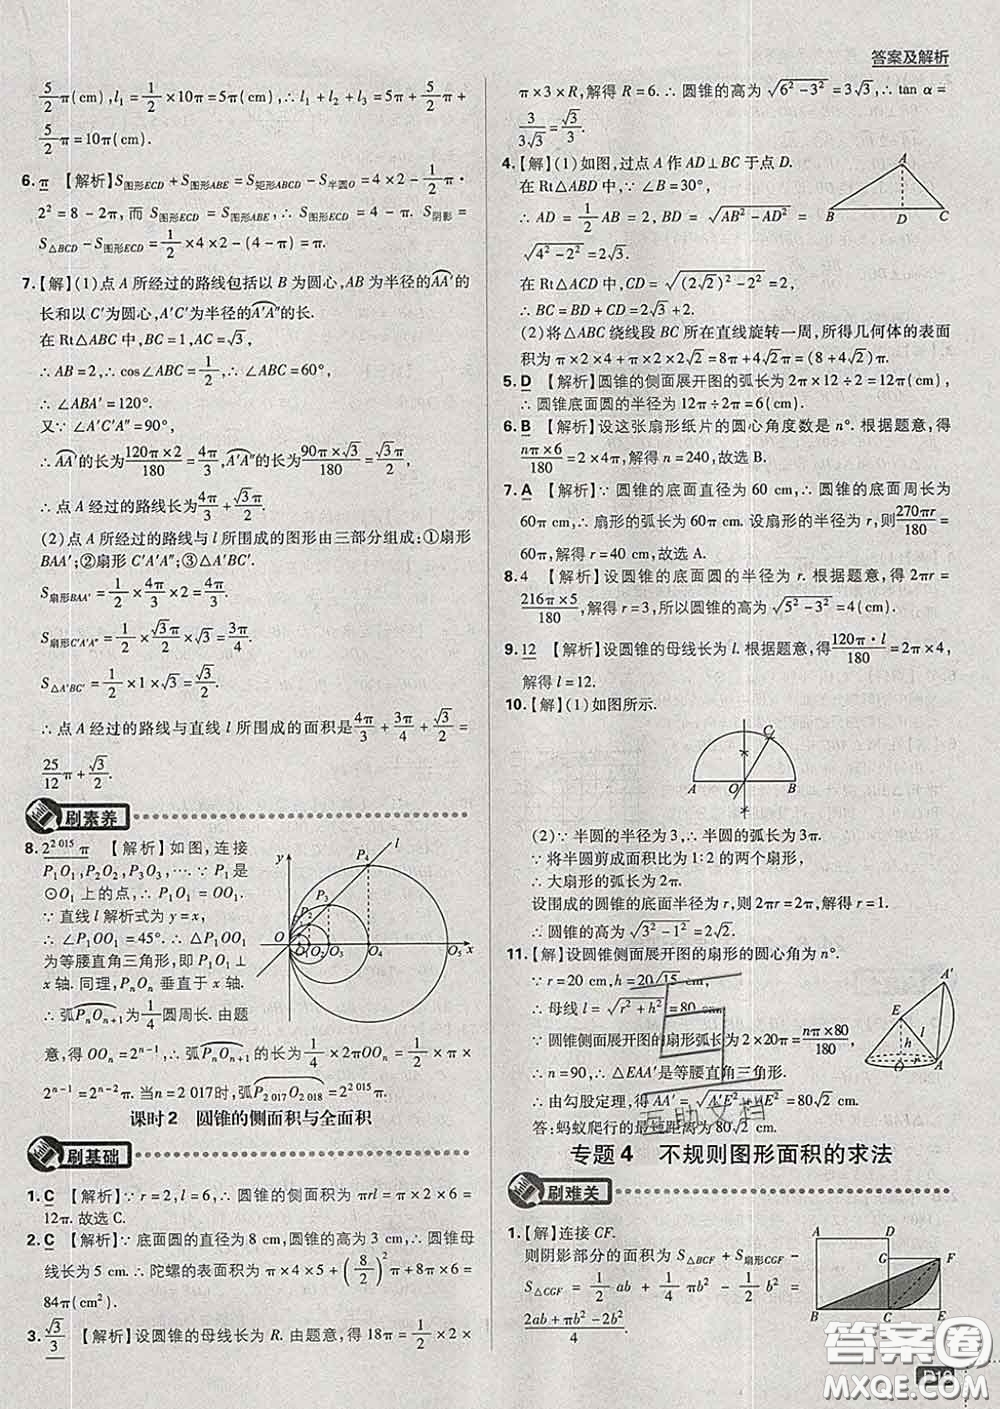 答案及解析
5/2 π(cm),l₁=1/2×10π=5π(cm),∴l₁+l₂+l₃=5π+5/2 π+
5/2 π=10π(cm).
6. π 【解析】S图形ECD+S图形ABE=S矩形ABCD-S半圆O=4×2-1/2 π·
2²=8-2π,而 S图形ECD=S图形ABE,∴S图形ECD=4-π. S阴影=
S△BCD-S图形ECD=1/2×4×2-(4-π)=π.
7.【解】(1)点 A 所经过的路线包括以 B 为圆心,AB 为半径的AA′的
长和以 C′为圆心,A′C′为半径的A′A″的长.
在 Rt△ABC 中,BC=1,AC=√3,
∴AB=2,∴cos∠ABC=1/2,∴∠ABC=60°,
∴∠ABA′=120°.
又∵∠A′C′A″=90°,
∴AA′的长为120π×2/180=4π/3,A′A″的长为90π×√3/180=√3π/2,
∴点 A 经过的路线长为4π/3+√3π/2.
(2)点 A 所经过的路线与 l 所围成的图形由三部分组成:①扇形
BAA′;②扇形 C′A′A″;③△A′BC′.
S扇形BAA′=1/2×4π/3×2=4π/3,
S扇形C′A′A″=1/2×√3π/2×√3=3π/4,
S△A′BC′=1/2×1×√3=√3/2,
∴点 A 经过的路线与直线 l 所围成的面积是4π/3+3π/4+√3/2=
25/12 π+√3/2.
刷素养
8. 2^2 015 π 【解析】如图,连接
P₁O₁,P₂O₂,P₃O₃,…∵P₁是
⊙O₁上的点,∴P₁O₁=OO₁.
∵直线 l 解析式为 y=x,
∴∠P₁OO₁=45°.∴△P₁OO₁
为等腰直角三角形,即P₁O₁⊥
x 轴.同理,PₙOₙ 垂直于 x
轴.∴弧PₙOₙ₊₁为1/4圆周长.由题
意,得OOₙ=2ⁿ⁻¹,∴弧PₙOₙ₊₁的长为1/4×2πOOₙ=1/2×π×
2ⁿ⁻¹=2ⁿ⁻²π.当 n=2 017时,弧P₂ ₀₁₇O₂ ₀₁₈=2^2 015 π.
y P₄ l P₃ P₂ P₁ O O₁ O₂ O₃ O₄ O₅ x
课时2 圆锥的侧面积与全面积
刷基础
1. C 【解析】∵r=2,l=6,∴圆锥的侧面积为 πrl=π×2×6=
12π.故选C.
2. C 【解析】∵底面圆的直径为8 cm,圆锥的高为3 cm,∴圆锥母
线长为5 cm,∴陀螺的表面积为 π×4×5+(8/2)²π+8π×6=
84π(cm²).
3. √3/3 【解析】设圆锥的母线长为 R.由题意,得18π=1/2×2×
π×3×R,解得 R=6.∴圆锥的高为√(6²-3²)=3√3,∴tan α=
3/(3√3)=√3/3.
4.【解】(1)如图,过点 A 作 AD⊥BC 于点 D.
在 Rt△ABD 中,∵∠B=30°,
∴AD=1/2 AB=2,BD=√(AB²-AD²)=
√(4²-2²)=2√3.
在 Rt△ACD 中,CD=√((2√2)²-2²)=2,
∴BC=BD+CD=2√3+2.
A B D C
(2)将△ABC 绕线段 BC 所在直线旋转一周,所得几何体的表面
积为 π×2×4+π×2×2√2=8π+4√2π=(8+4√2)π.
5. D 【解析】圆锥的侧面展开图的弧长为2π×12÷2=12π(cm),
∴圆锥底面圆的半径为12π÷2π=6(cm).
6. B 【解析】设这张扇形纸片的圆心角度数是 n°.根据题意,得
nπ×6/180=2×4π,解得 n=240,故选B.
7. A 【解析】∵圆锥的底面直径为60 cm,∴圆锥的底面周长为
60π cm,∴扇形的弧长为60π cm.设扇形的半径为 r,则270πr/180=
60π,解得 r=40 cm,故选A.
8. 4 【解析】设圆锥的底面圆的半径为 r.根据题意,得2πr=
216π×5/180,解得 r=3,所以圆锥的高为√(5²-3²)=4(cm).
9. 12 【解析】设圆锥的母线长为 l.根据题意,得120π·l/180=2π×4,
解得 l=12.
10.【解】(1)如图所示.
C A O B
(2)∵半圆的半径为3,∴半圆的弧长为3π.
∵将半圆剪成面积比为1∶2的两个扇形,
∴大扇形的弧长为2π.
设围成的圆锥的底面圆的半径为 r,则2πr=2π,解得 r=1.
∴圆锥的高为√(3²-1²)=2√2.
11.【解】设圆锥侧面展开图的扇形的圆心角为 n°.
∵r=20 cm,h=20√15 cm,
∴母线 l=√(r²+h²)=80 cm,
∵圆锥侧面展开图的扇形弧长为2×20π=nπ×80/180,
∴n=90,∴△EAA′是等腰直角三角形,
∴由勾股定理,得AA′=√(A′E²+AE²)=80√2 cm.
答:蚂蚁爬行的最短距离为80√2 cm.
A′ E l h O r A
专题4 不规则图形面积的求法
刷难关
1.【解】连接 CF.
则阴影部分的面积为 S△BCF+S扇形CGF-
S△CGF=1/2 ab+1/4 πb²-1/2 b²=
(2ab+πb²-2b²)/4.
A D G F B C E
互助文档
答案圈
MXQE.COM
D19